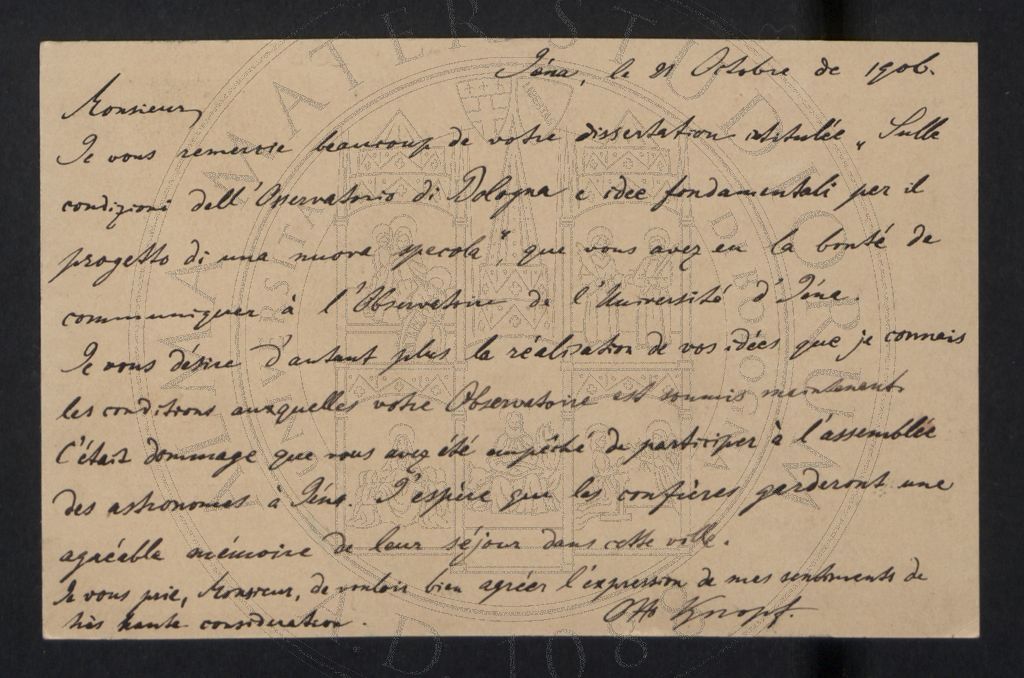 Iéna, le 21 Octobre de 1906.
Monsieur,
Je vous remercie beaucoup de votre dissertation intitulée „Sulle
condizioni dell'Osservatorio di Bologna e idee fondamentali per il
progetto di una nuova specola", que vous avez eu la bonté de
communiquer à l'Observatoire de l'Université d'Iéna.
Je vous désire d'autant plus la réalisation de vos idées que je connais
les conditions auxquelles votre Observatoire est soumis maintenant.
C'était dommage que vous avez été empêché de participer à l'assemblée
des astronomes à Iéna. J'espère que les confrères garderont une
agréable mémoire de leur séjour dans cette ville.
Je vous prie, Monsieur, de vouloir bien agréer l'expression de mes sentiments de
très haute considération. Otto Knopf.
ALMA MATER STUDIORUM
A.D. 1088